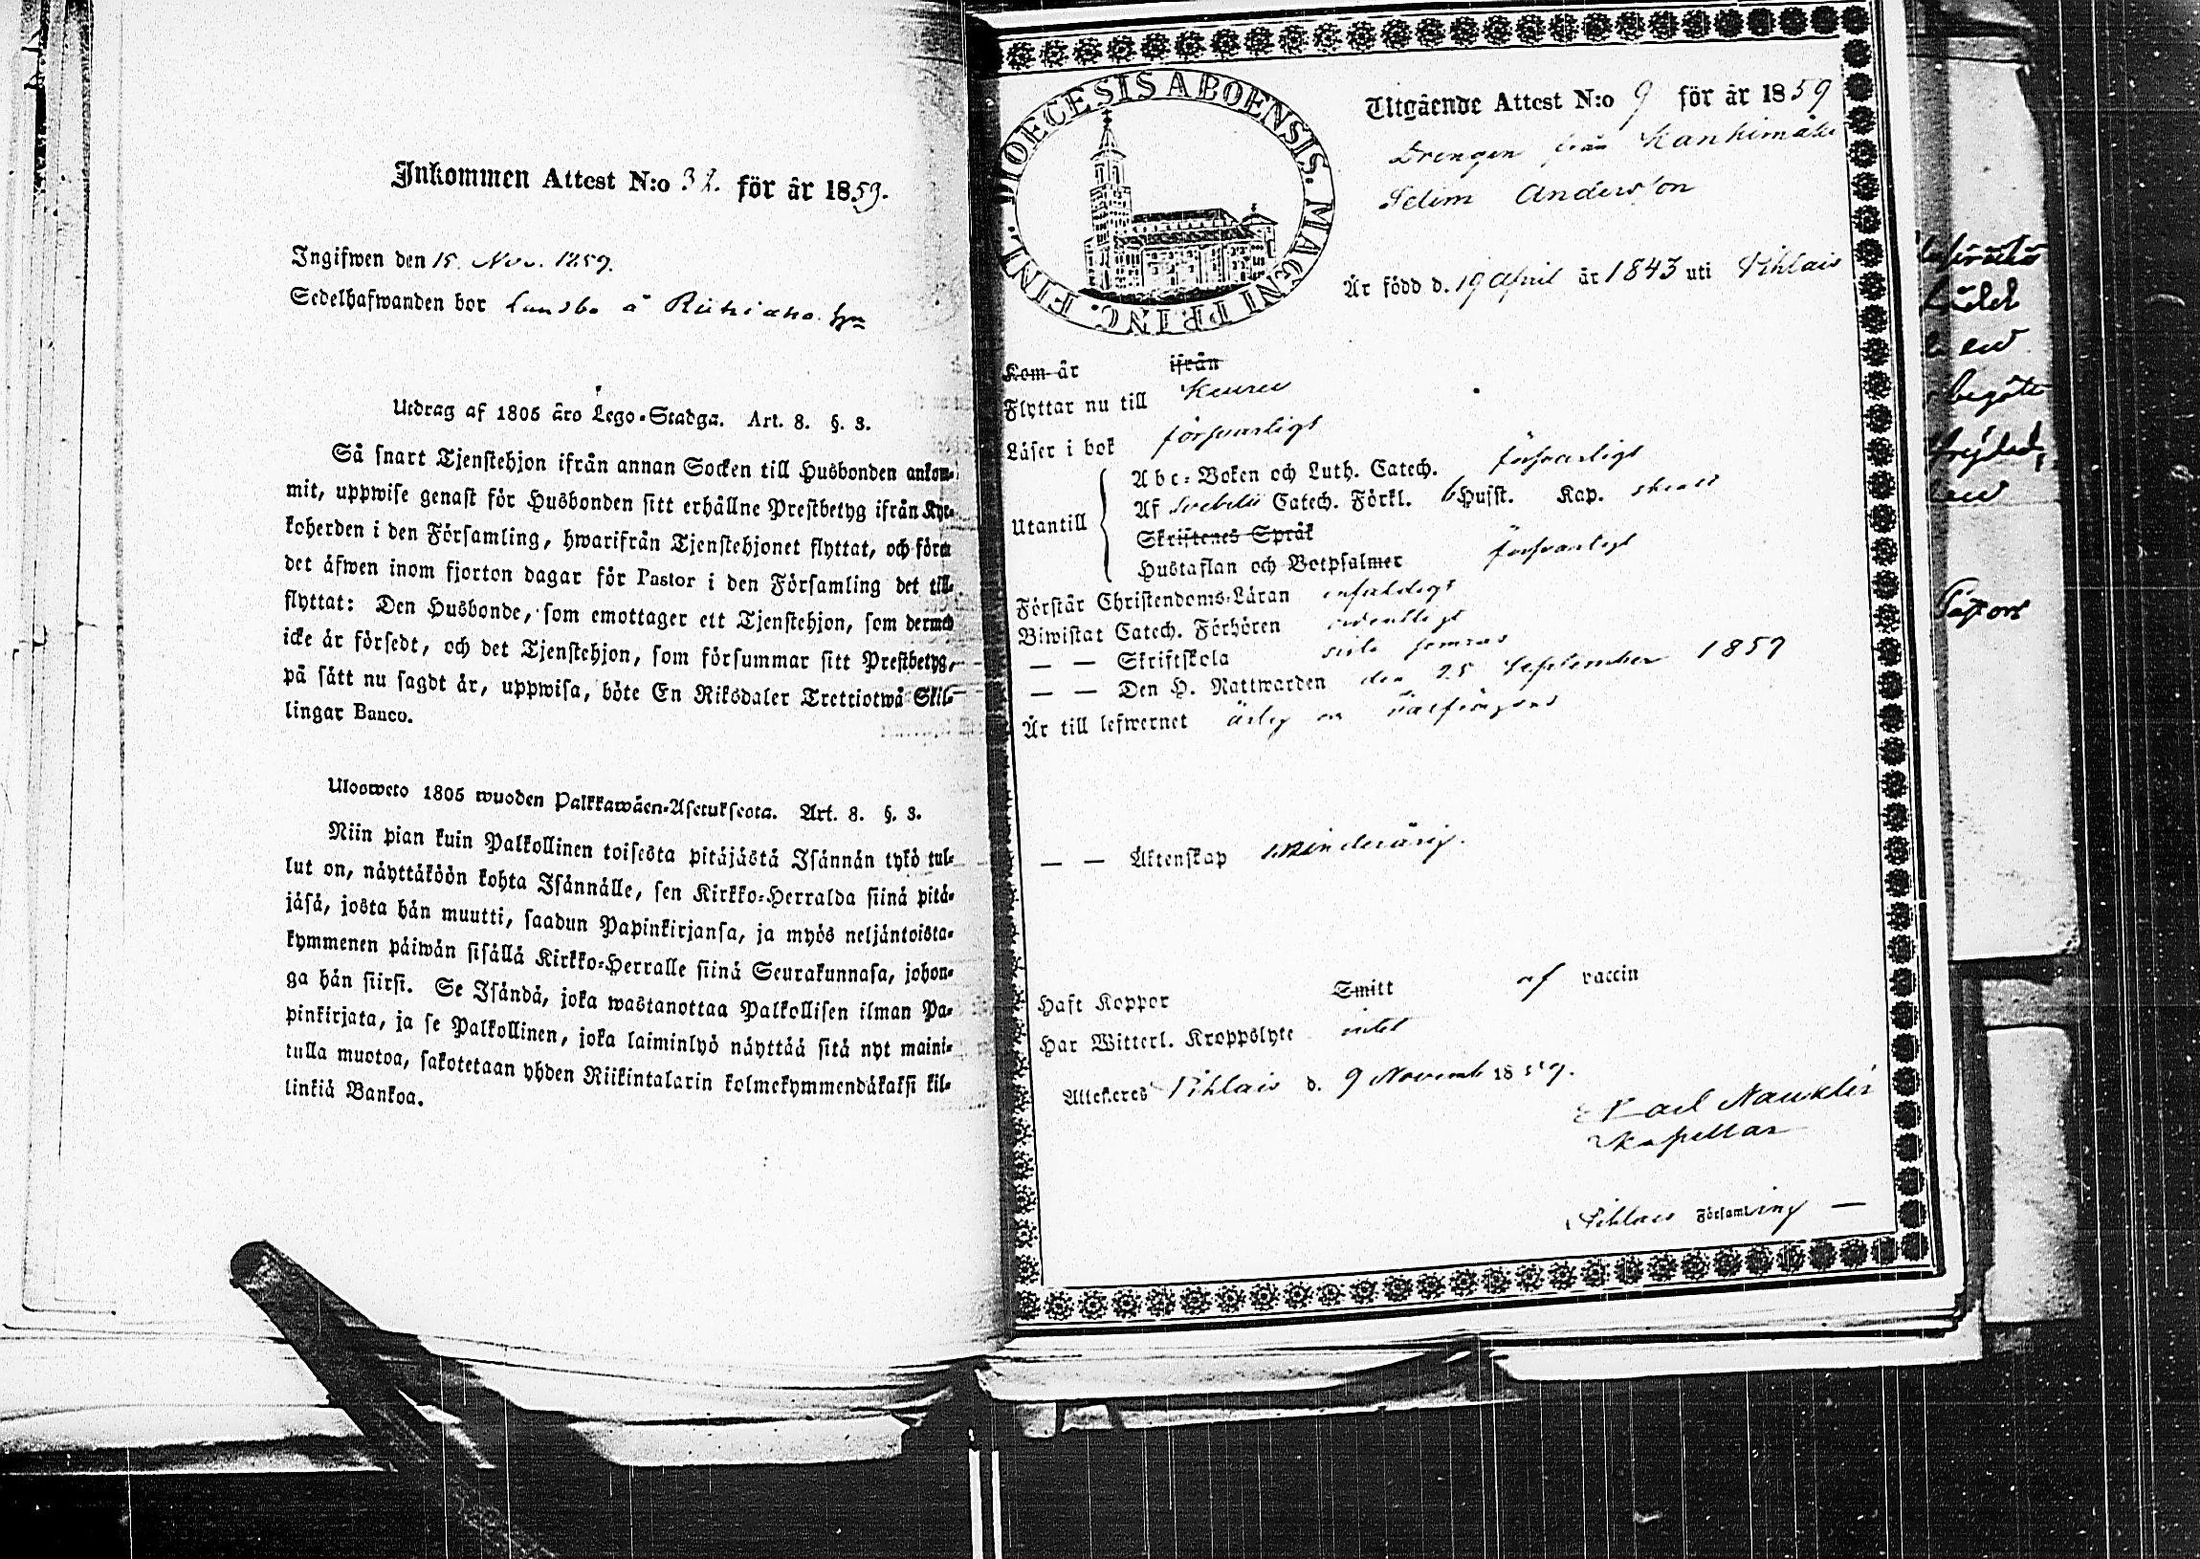 Inkommen Attest N:o 32. för år 1859.
Ingifwen den 15. Nov. 1859.
Sedelhafwanden bor Lundbo å
Utdrag af 1805 åro Lego-Stadga. Art. 8. §. 3.
Så snart Tjenstehjon ifrån annan Socken till Husbonden ankom-
mit, uppwise genast för Husbonden sitt erhållne Prestbetyg ifrån Kyr-
koherden i den Församling, hwarifrån Tjenstehjonet flyttat, och förete
det äfwen inom fjorton dagar för Pastor i den Församling det till-
flyttat: Den Husbonde, som emottager ett Tjenstehjon, som dermed
icke är försedt, och det Tjenstehjon, som försummar sitt Prestbetyg,
på sätt nu sagdt är, uppwisa, böte En Riksdaler Trettiotwå Skil-
lingar Banco.
Ulosweto 1805 wuoden Palkkawäen-Asetuksesta. Art. 8. §. 3.
Niin pian kuin Palkollinen toisesta pitäjästä Isännän tykö tul-
lut on, näyttäköön kohta Isännälle, sen Kirkko-Herralda siinä pitä-
jäsä, josta hän muutti, saadun Papinkirjansa, ja myös neljäntoista-
kymmenen päiwän sisällä Kirkko-Herralle siinä Seurakunnasa, johon-
ga hän siirsi. Se Isändä, joka wastanottaa Palkollisen ilman Pa-
pinkirjata, ja se Palkollinen, joka laiminlyö näyttää sitä nyt maini-
tulla muotoa, sakotetaan yhden Riikintalarin kolmekymmendäkaksi kil-
linkiä Bankoa.
DIOECESIS ABOENSIS. MAGNI PRINC. FINL.
Utgående Attest N:o 9 för år 1859
Drengen från Kankimäki
Selim Andersson
Är född d. 19 April år 1843 uti Pihlais
Kom år ifrån
Flyttar nu till
Läser i bok försvarligt
Utantill
Abc-Boken och Luth. Catech. försvarligt
Af Svebelii Catech. Förkl. 6 Hufst. Kap.
Skriftenes Språk
Hustaflan och Botpsalmer försvarligt
Förstår Christendoms-Läran enfaldigt
Biwistat Catech. Förhören ordentligt
— — Skriftskola
— — Den H. Nattwarden den 25 September 1859
Är till lefwernet ärlig och välfrägdad
— — Äktenskap minderårig.
Haft Koppor Smitt af vaccin
Har Witterl. Kroppslyte intet
Attesteres Pihlais d. 9 Novemb 1859.
Karl Nauklér
Kapellan
Pihlais Församling —